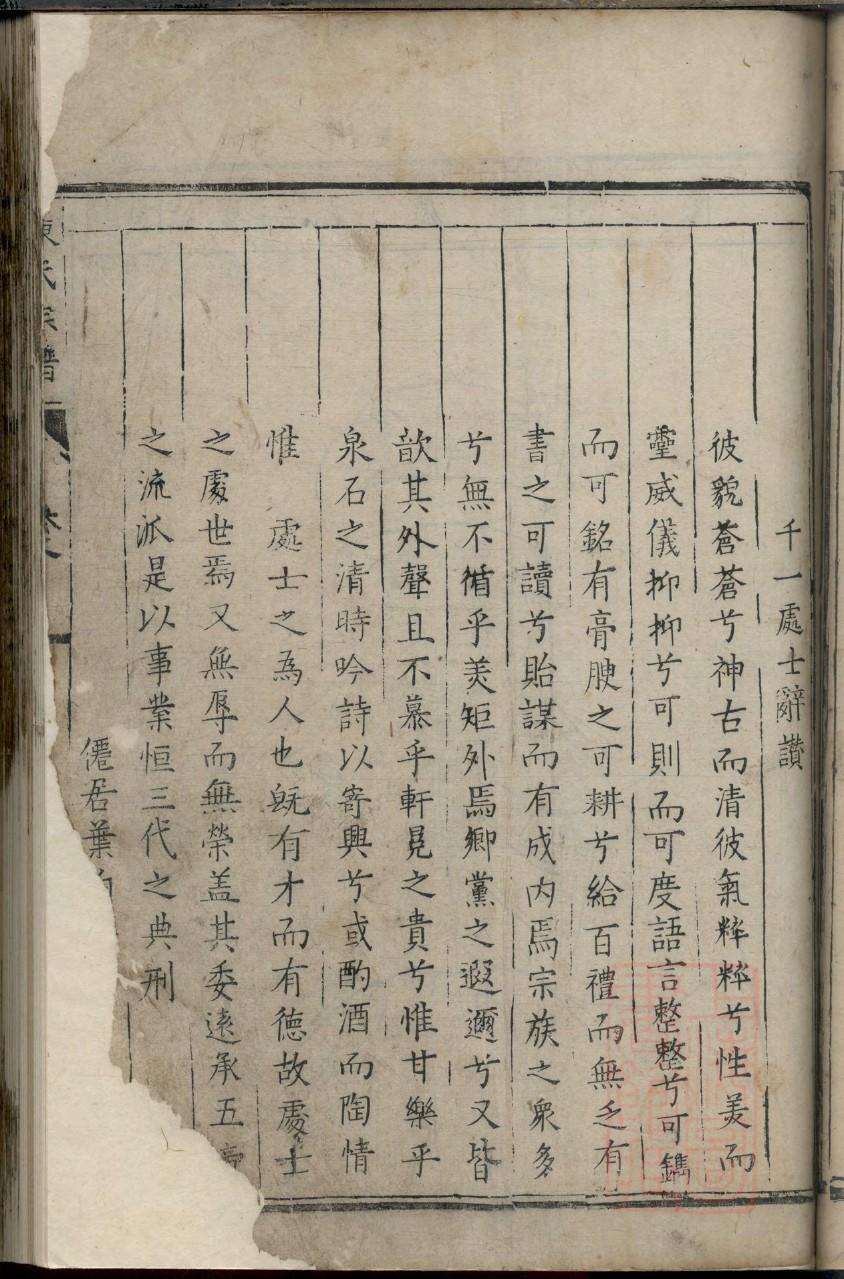 千一處士辭讃
彼貌蒼蒼兮神古而清彼氣粹粹兮性美而
靈威儀抑抑兮可則而可度語言整整兮可鐫
而可銘有膏腴之可耕兮給百禮而無乏有
書之可讀兮貽謀而有成内焉宗族之衆多
兮無不循乎䂓矩外焉鄉黨之遐邇兮又皆
歆其外聲且不慕乎軒冕之貴兮惟甘樂乎
泉石之清時吟詩以寄興兮或酌酒而陶情
惟 處士之為人也既有才而有德故處士
之處世焉又無辱而無榮盖其委逺承五
之流派是以事業恒三代之典刑
僊居葉
氏宗譜